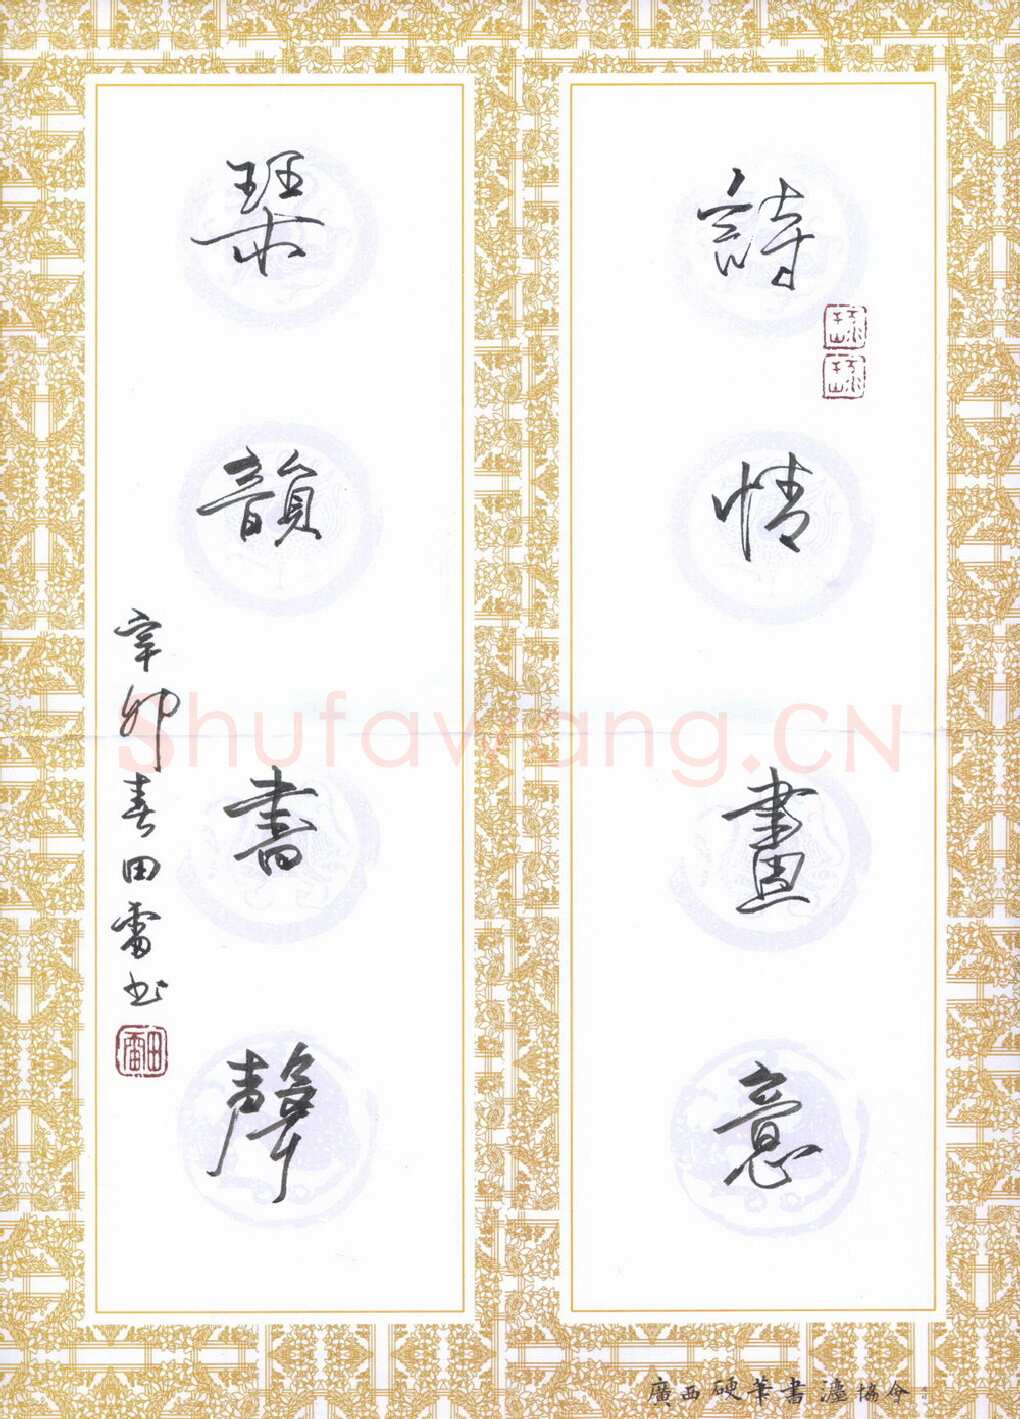 詩情畫意
琹韻書聲
辛卯春田雷书
田雷
Shufawang.CN
廣西硬筆書灋協會